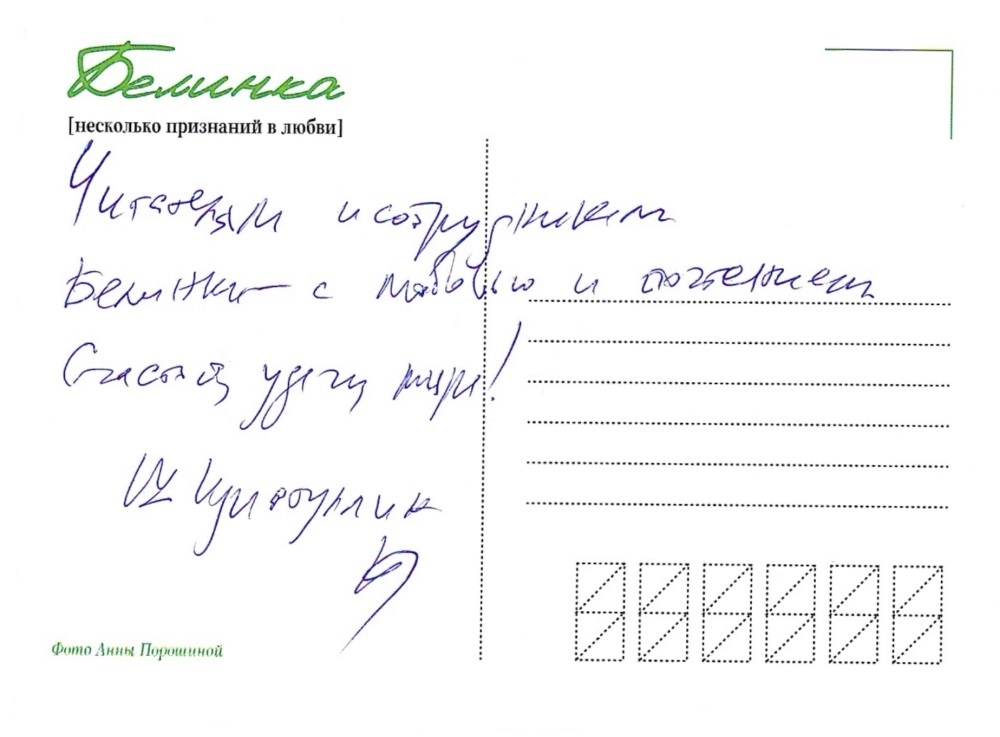 Белинка
[несколько признаний в любви]
Читателям и сотрудникам
Белинки — с любовью и почтением
Счастья, удачи, мира!
Фото Анны Порошиной